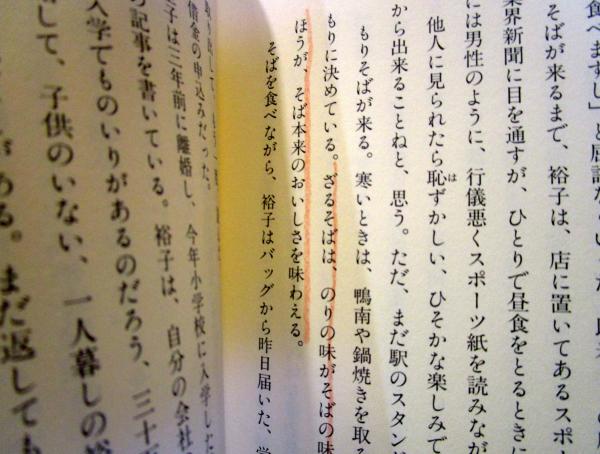 食べますし」と
そばが来るまで、裕子は、店に置いてあるスポ
業界新聞に目を通すが、ひとりで昼食をとるときに
には男性のように、行儀悪くスポーツ紙を読みなが
他人に見られたら恥ずかしい、ひそかな楽しみで
から出来ることねと、思う。ただ、まだ駅のスタン
もりそばが来る。寒いときは、鴨南や鍋焼きを取る
もりに決めている。ざるそばは、のりの味がそばの味
ほうが、そば本来のおいしさを味わえる。
そばを食べながら、裕子はバッグから昨日届いた、
借金の申込みだった。
子は三年前に離婚し、今年小学校に入学した
の記事を書いている。裕子は、自分の会社
入学でものいりがあるのだろう、三十
して、子供のいない、一人暮しの
がある。まだ返しても